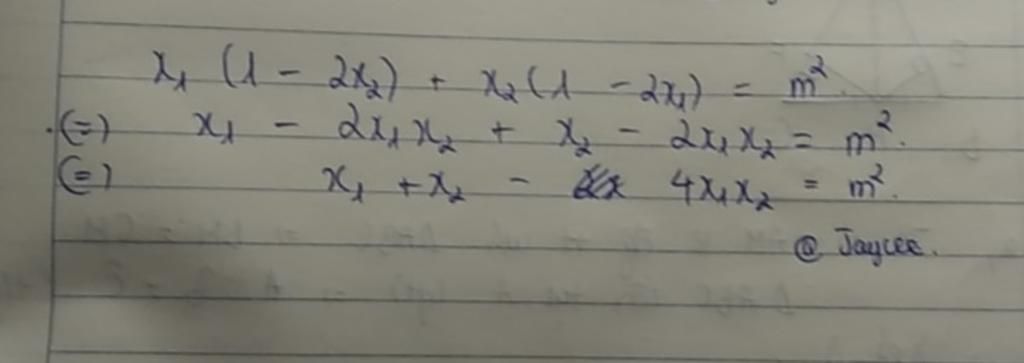 x₁ (1 - 2x₂) + x₂ (1 - 2x₁) = m².
(=) x₁ - 2x₁x₂ + x₂ - 2x₁x₂ = m².
(=) x₁ + x₂ - 4x₁x₂ = m².
@ Jaycee.